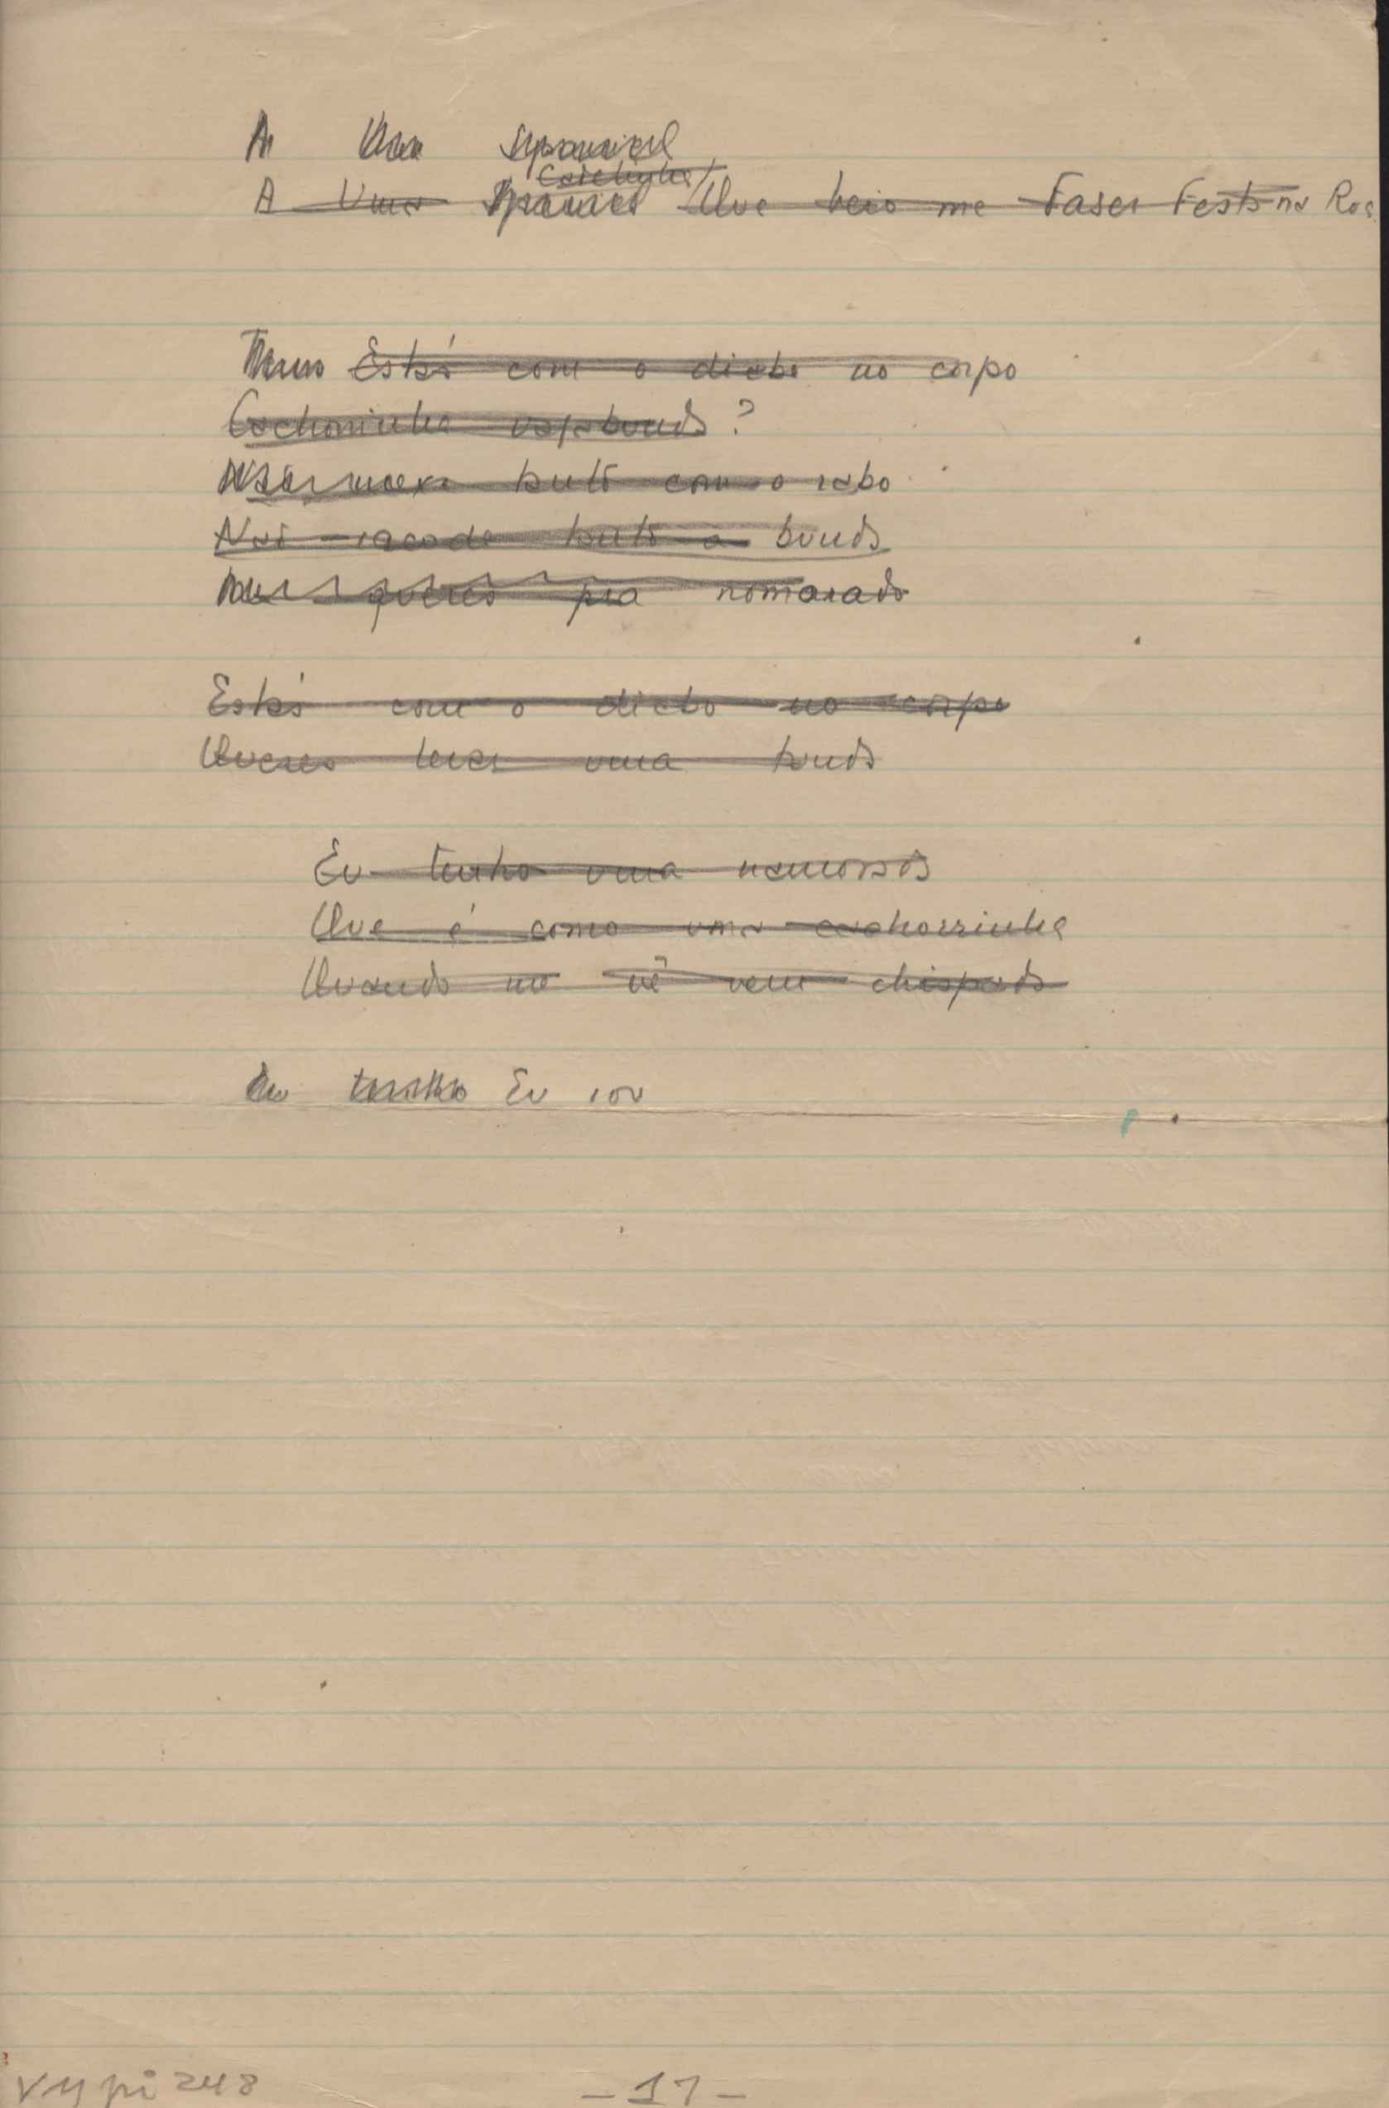 A Uma Spaniel
A Uma Spaniel Que veio me Fazer Festa na Rua
Está com o diabo no corpo
Cachorrinha vagabunda?
mexa tanto com o rabo
Não sacode tanto a bunda
queres pra namorado
Está com o diabo no corpo
Queres levar uma tunda
Eu tenho uma namorada
Que é como uma cachorrinha
Quando me vê vem chispada
Eu tenho Eu sou
VM pi 248
- 17 -